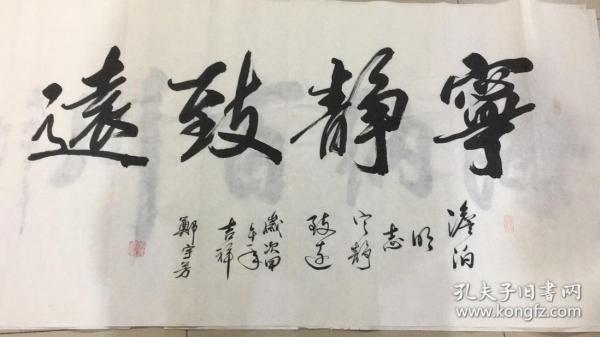 寧靜致遠
澹泊
明
志
宁靜
致远
歲
午年
吉祥
鄭宇芳
孔夫子旧书网
www.kongfz.com